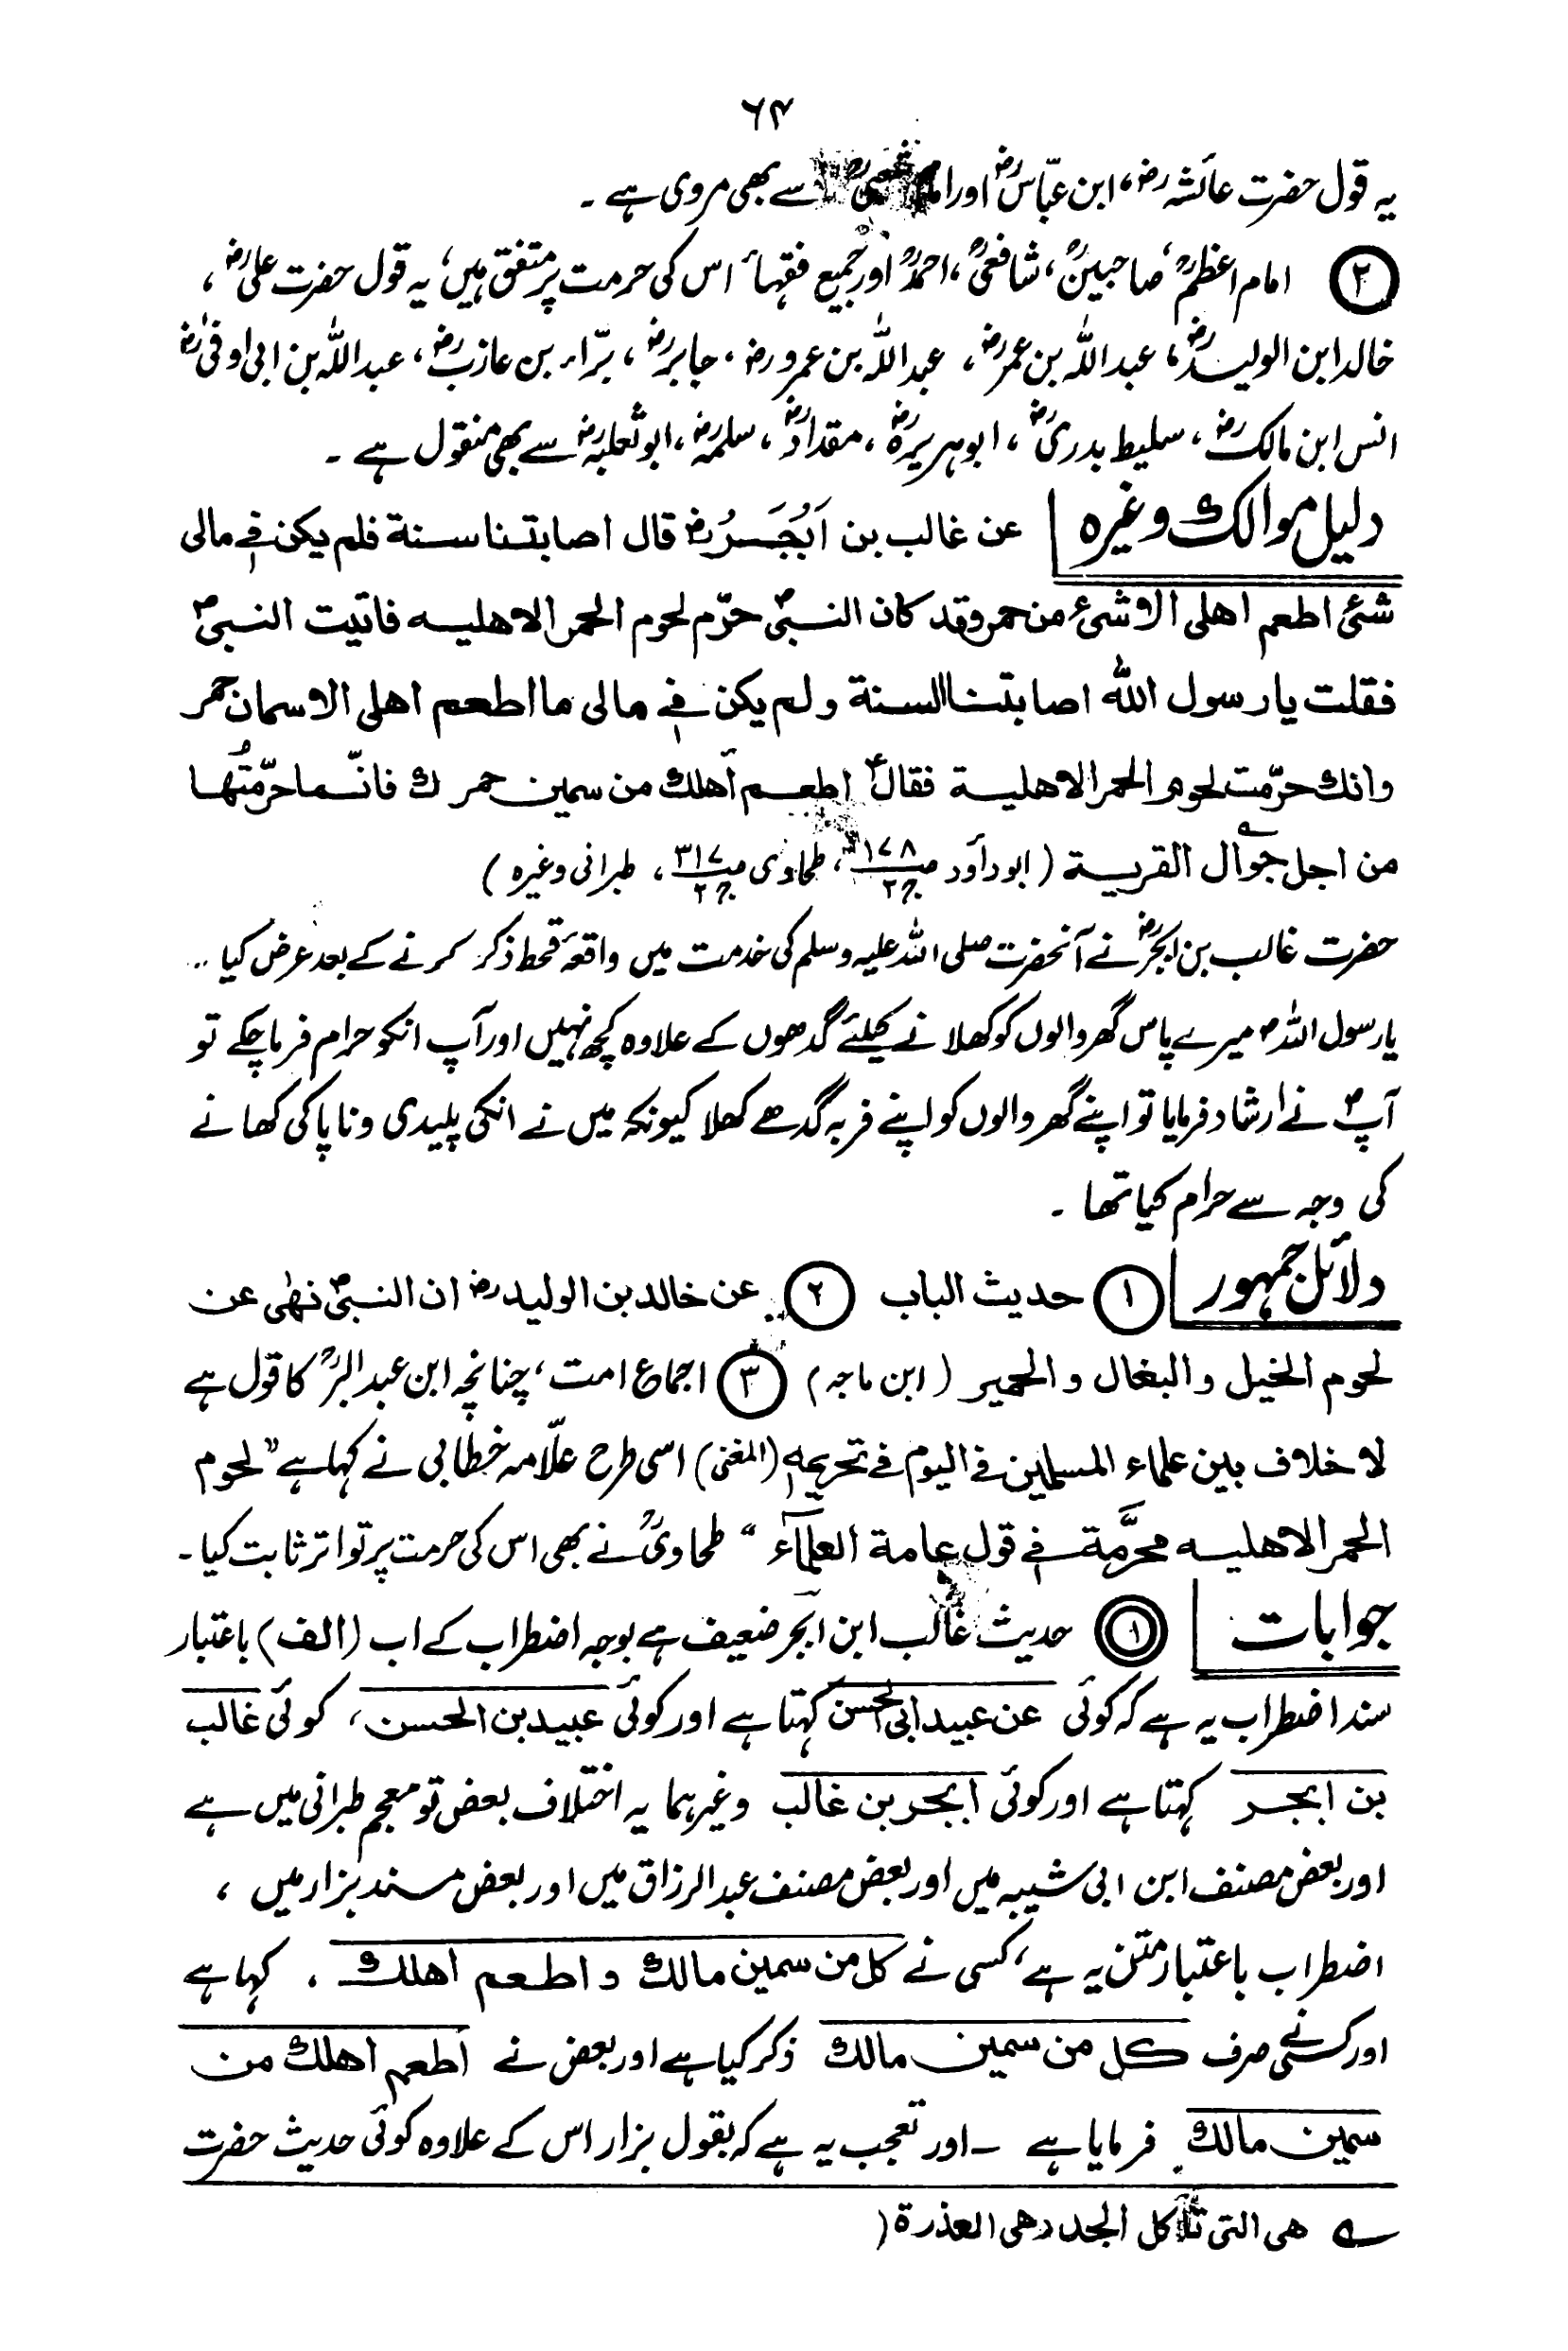 ۶۴
یہ قول حضرت عائشہ رض، ابن عبّاس رض اور امام سے بھی مروی ہے ۔
② امام اعظم رح، صاحبین رح، شافعی رح، احمد رح اور جمیع فقہاء اس کی حرمت پر متفق ہیں، یہ قول حضرت علی رض،
خالد ابن الولید رض، عبداللہ بن عمر رض، عبداللہ بن عمرو رض، جابر رض، برّاء بن عازب رض، عبداللہ بن ابی اوفیٰ رض
انس ابن مالک رض، سلیط بدری رض، ابو ہریرہ رض، مقداد رض، سلمہ رض، ابو ثعلبہ رض سے بھی منقول ہے ۔
دلیل موالک وغیرہ | عن غالب بن اَبْجَرُ رض قال اصابتنا سنة فلم یکن فی مالی
شئ اطعم اهلی الا شئ من حمر وقد کان النبی ص حرّم لحوم الحمر الاهلیه فاتیت النبی ص
فقلت یا رسول اللہ اصابتنا السنة ولم یکن فی مالی ما اطعم اهلی الا سمان حمر
وانك حرّمت لحوم الحمر الاهلیة فقال ع اطعم أهلك من سمین حمرك فانّما حرّمتُها
من اجل جوال القریة (ابو داؤد ص ۱۷۸ ج ۲، طحاوی ص ۳۱۷ ج ۲، طبرانی وغیرہ)
حضرت غالب بن ابجر رض نے آنحضرت صلی اللہ علیہ وسلم کی خدمت میں واقعۂ قحط ذکر کرنے کے بعد عرض کیا ..
یا رسول اللہ ص میرے پاس گھر والوں کو کھلانے کیلئے گدھوں کے علاوہ کچھ نہیں اور آپ انکو حرام فرما چکے تو
آپ ص نے ارشاد فرمایا تو اپنے گھر والوں کو اپنے فربہ گدھے کھلا کیونکہ میں نے انکی پلیدی و ناپاکی کھانے
کی وجہ سے حرام کیا تھا ۔
دلائل جمہور | ① حدیث الباب ② عن خالد بن الولید رض ان النبی ص نہٰی عن
لحوم الخیل والبغال والحمیر (ابن ماجہ) ③ اجماع امت، چنانچہ ابن عبدالبر رح کا قول ہے
لا خلاف بین علماء المسلمین فی الیوم فی تحریمه (المغنی) اسی طرح علّامہ خطابی نے کہا ہے "لحوم
الحمر الاهلیه محرَّمة فی قول عامة العلماء" طحاوی رح نے بھی اس کی حرمت پر تواتر ثابت کیا ۔
جوابات | ① حدیث غالب ابن ابجر ضعیف ہے بوجہ اضطراب کے اب (الف) باعتبار
سند اضطراب یہ ہے کہ کوئی عن عبید ابی الحسن کہتا ہے اور کوئی عبید بن الحسن، کوئی غالب
بن ابجر کہتا ہے اور کوئی ابجر بن غالب وغیرہما یہ اختلاف بعض تو معجم طبرانی میں ہے
اور بعض مصنف ابن ابی شیبہ میں اور بعض مصنف عبدالرزاق میں اور بعض مسند بزار میں ،
اضطراب باعتبار متن یہ ہے، کسی نے کل من سمین مالك و اطعم اهلك ، کہا ہے
اور کسی نے صرف کل من سمین مالك ذکر کیا ہے اور بعض نے اطعم اهلك من
سمین مالك فرمایا ہے ـ اور تعجب یہ ہے کہ بقول بزار اس کے علاوہ کوئی حدیث حضرت
ـه هی التی تأکل الجلد وهی العذرة (